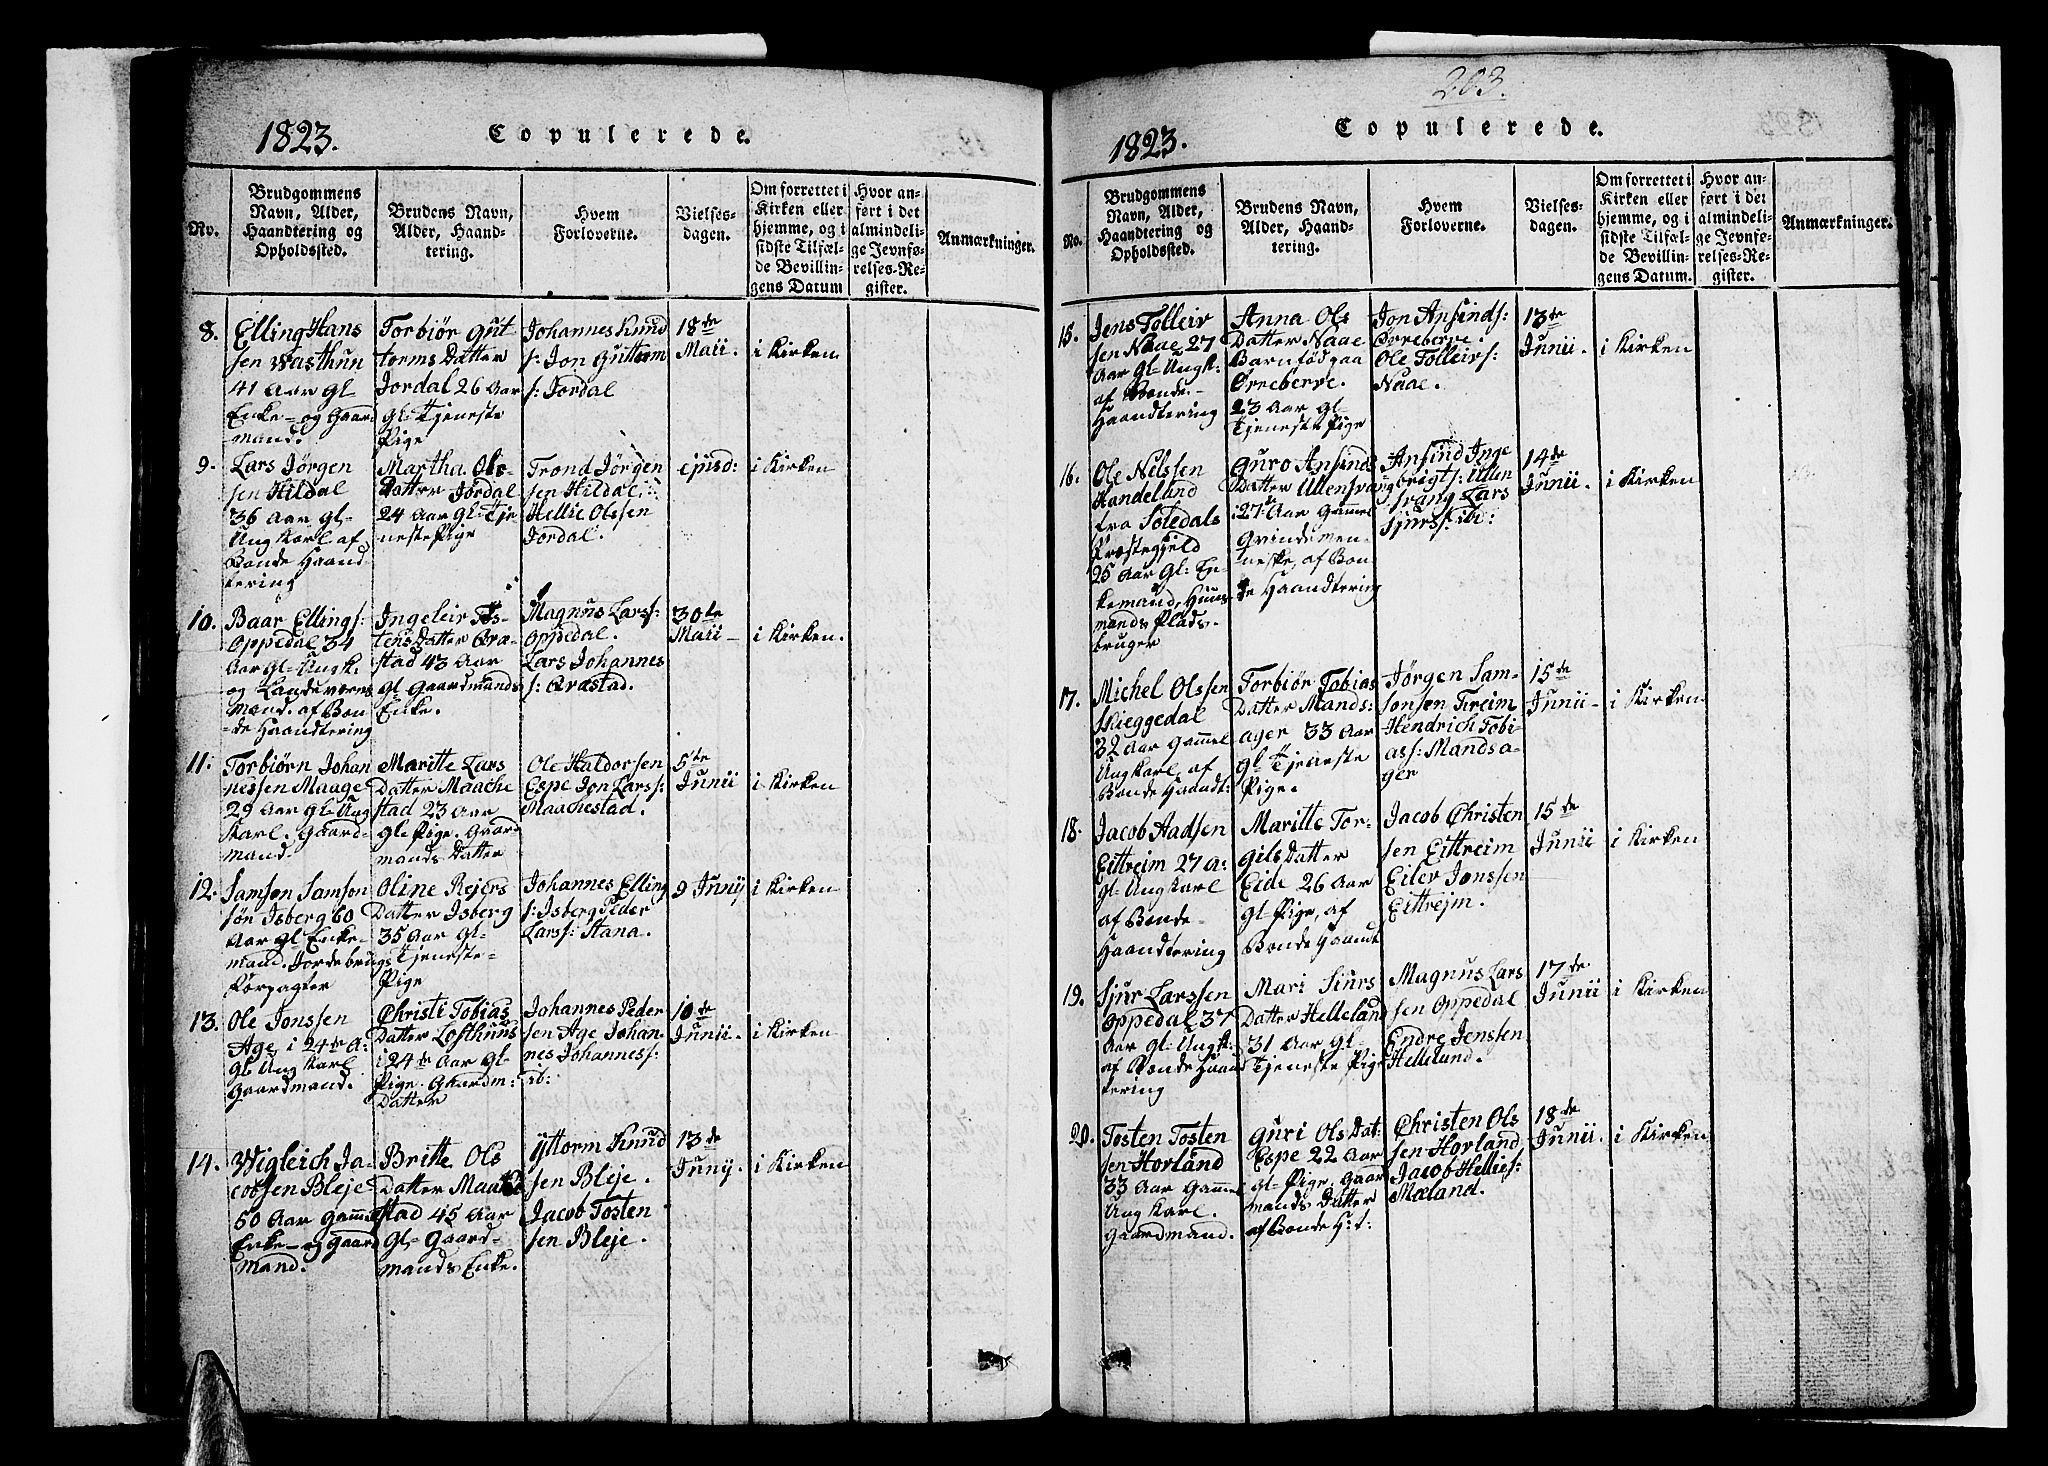 1823.
Copulerede.
No.
Brudgommens
Navn, Alder,
Haandtering og
Opholdssted.
Brudens Navn,
Alder, Haand-
tering.
Hvem
Forloverne.
Vielses-
dagen.
Om forrettet i
Kirken eller
hjemme, og i
sidste Tilfæl-
de Bevillin-
gens Datum
Hvor an-
ført i det
almindeli-
ge Jevnfø-
relses-Re-
gister.
Anmærkninger.
8.
Elling Hans
sen Wasthun
41 Aar Gl
Enke- og Gaard
mand.
Torbiør Gut
torms Datter
Jordal 26 Aar
Gl. Tjeneste
Pige
Johannes Knud
s: Jon Guttorm
s: Jordal
18de
Maii.
i Kirken
9.
Lars Jørgen
sen Hildal
36 Aar Gl-
Ungkarl af
Bonde Haand
tering
Martha Ols-
Datter Jordal
24 Aar Gl- Tje
neste Pige
Trond Jørgen
sen Hildal
Hellie Olssen
Jordal.
ejusd:
i Kirken
10.
Baar Ellings:
Oppedal 34
Aar Gl- Ungk.
og Landeværns
Mand. af Bon
-de Haandtering
Ingeleir Tos-
tens Datter Qræ-
stad 43 Aar
Gl- Gaardmands
Enke.
Magnus Larss:
Oppedal.
Lars Johannes
s: Qræstad.
30te
Maii-
i Kirken.
11.
Torbiørn Johan
nessen Maage
29 Aar Gl- Ung
Karl. Gaard-
mand.
Maritte Lars
Datter Maache
stad 23 Aar
Gl- Pige. Gaard
mands Datter
Ole Haldorsen
Espe Jon Larss:
Maachestad.
5te
Junii
i Kirken
12.
Samson Samson
søn Isberg 60
Aar Gl- Enke-
mand. Jordebrugs
Forpagter
Oline Rejers
Datter Isberg
35 Aar Gl-
Tjeneste-
Pige
Johannes Elling
s: Isberg Peder
Larss: Stana.
9 Junij
i Kirken
13.
Ole Jonssen
Age i 24de A:
Gl. Ung Karl
Gaardmand.
Christi Tobias
Datter Lofthuus
i 24de Aar Gl-
Pige. Gaardm:
Datter
Johannes Peder
sen Age Johan-
nes Johanness:
ib:
10de
Junii.
i Kirken
14.
Wigleich Ja-
cobsen Bleje
50 Aar Gammel
Enke- og Gaard
Mand.
Britte Ols
Datter Maake
stad 45 Aar
Gl- Gaard-
mands Enke.
Yttorm Knud
sen Bleje.
Jacob Tosten
sen Bleje.
13de
Juny.
i Kirken
203.
1823.
Copulerede.
No.
Brudgommens
Navn, Alder,
Haandtering og
Opholdssted.
Brudens Navn,
Alder, Haand-
tering.
Hvem
Forloverne.
Vielses-
dagen.
Om forrettet i
Kirken eller
hjemme, og i
sidste Tilfæl-
de Bevillin-
gens Datum.
Hvor an-
ført i det
almindeli-
ge Jevnfø-
relses-Re-
gister.
Anmærkninger.
15.
Jens Tolleiv
sen Naae 27
Aar Gl- Ungk:
af Bonde-
Haandtering
Anna Ols
Datter Naae
Barnfød paa
Orreberve.
23 Aar Gl-
Tjeneste Pige
Jon Ansinds:
Orreberve.
Ole Tolleivs:
Naae.
13de
Junii.
i Kirken
16.
Ole Nilssen
Handeland
fra Soledals
Præstegjeld
25 Aar Gl: En-
kemand, Huus-
mands Plads-
bruger
Guro Ansinds
Datter Ullensvang
i 27de Aar Gammel
Qvindemen-
neske, af Bon-
de Haandtering
Ansind Inge
brigts: Ullen
svang Lars
Sjurs: ib:
14de
Junii.
i Kirken
17.
Michel Olssen
Skieggedal
32 Aar Gammel
Ungkarl, af
Bonde Haandt:
Torbiør Tobias
Datter Mands:
ager 33 Aar
Gl- Tjeneste
Pige.
Jørgen Sam-
sonsen Freim
Hendrich Tobi-
ass: Mandsa-
ger
15de
Junii-
i Kirken
18.
Jacob Aadsen
Eittreim 27 A:
Gl- Ungkarl
af Bonde-
Haandtering
Maritte Tor-
gils Datter
Eide 26 Aar
Gl- Pige, af
Bonde Haandt
Jacob Christen
sen Eittreim
Eiler Jonssen
Eittrejm.
15de
Junii
i Kirken
19.
Sjur Larssen
Oppedal 37
Aar Gl- Ungk:
af Bonde Haand
tering
Mari Siurs
Datter Helleland
31 Aar Gl-
Tjeneste Pige
Magnus Lars
sen Oppedal
Endre Jenssen
Helleland.
17de
Junii
i Kirken
20.
Tosten Tosten
sen Horland
33 Aar Gammel
Ung Karl.
Gaardmand.
Guri Ols Dat:
Espe 22 Aar
Gl- Pige. Gaard
mands Datter
af Bonde H:t:
Christen Ols
sen Horland
Jacob Hellies:
Mæland.
18de
Junii.
i Kirken